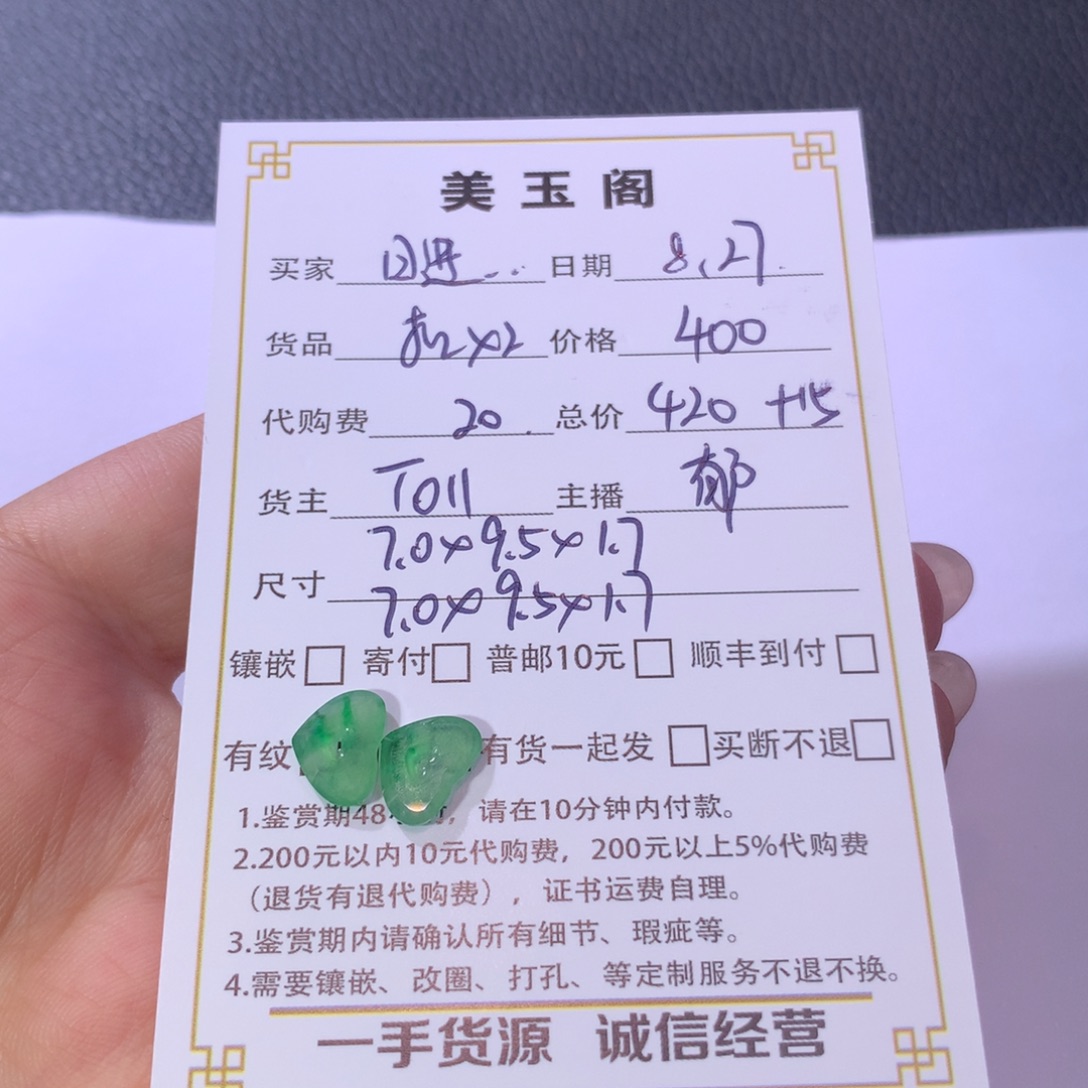 美玉阁
买家 日进... 日期 8.27.
货品 x2 价格 400
代购费 20. 总价 420 +15
货主 T011 主播 郁
7.0×9.5×1.7
尺寸 7.0×9.5×1.7
镶嵌□ 寄付□ 普邮10元□ 顺丰到付□
有纹 有货一起发□ 买断不退□
1.鉴赏期48 请在10分钟内付款。
2.200元以内10元代购费，200元以上5%代购费
（退货有退代购费），证书运费自理。
3.鉴赏期内请确认所有细节、瑕疵等。
4.需要镶嵌、改圈、打孔、等定制服务不退不换。
一手货源 诚信经营